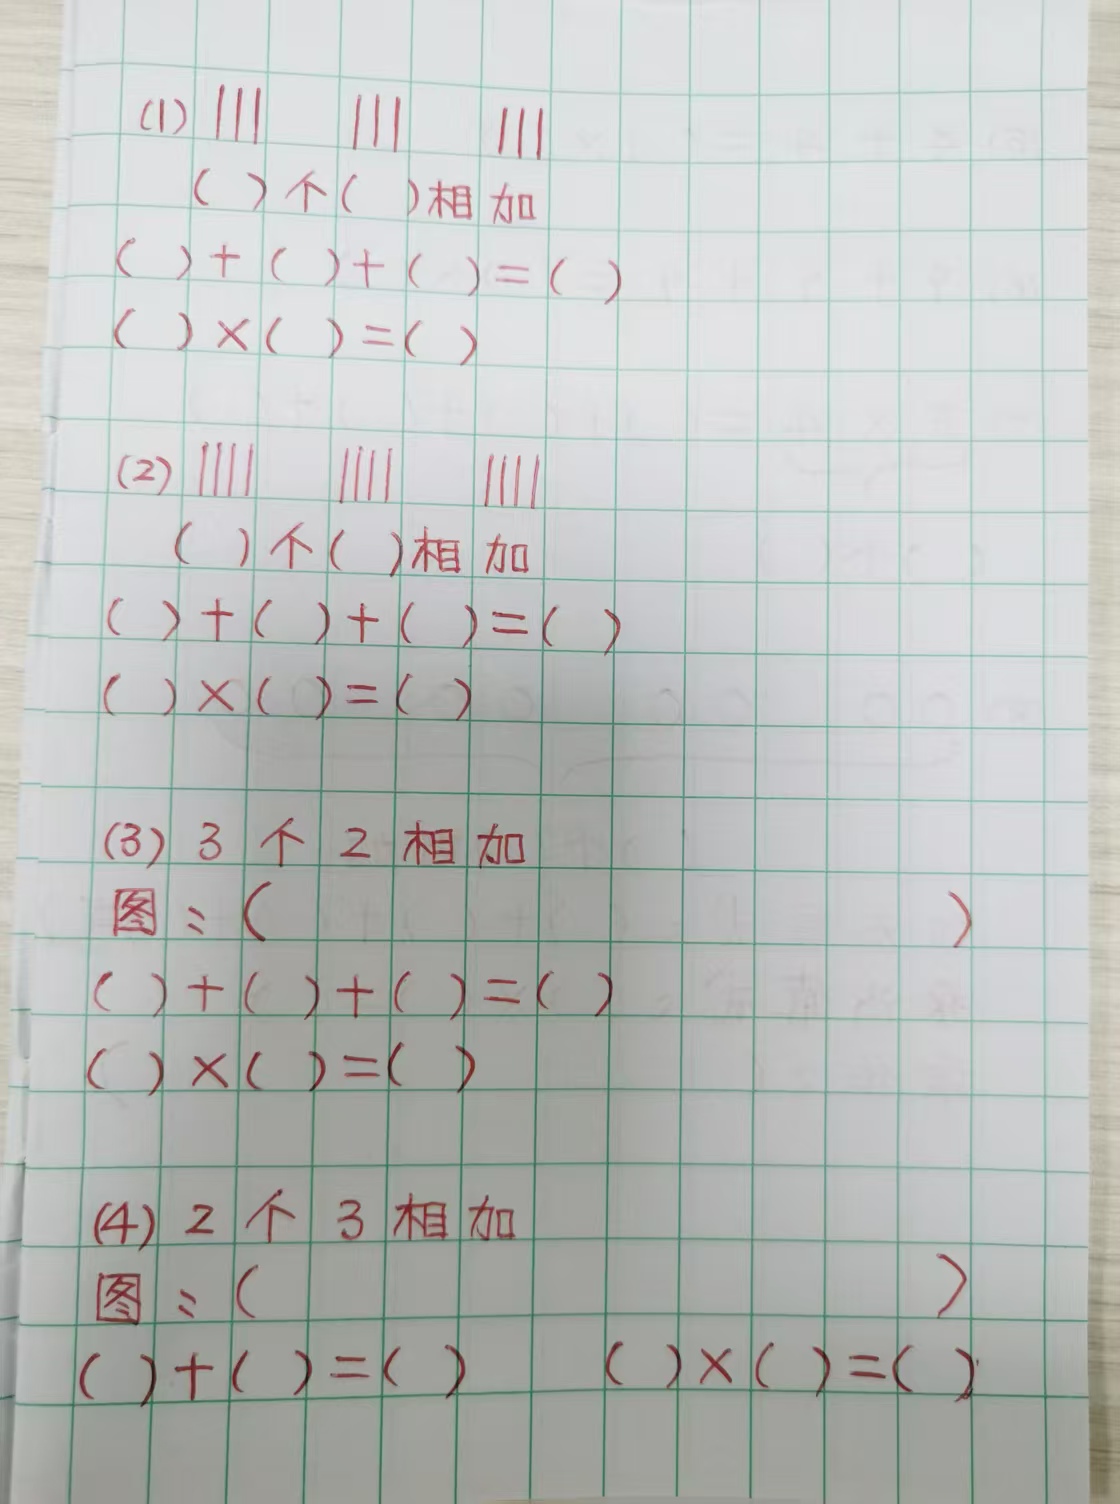 (1) ||| ||| |||
( )个( )相加
( )+( )+( )=( )
( )×( )=( )
(2) |||| |||| ||||
( )个( )相加
( )+( )+( )=( )
( )×( )=( )
(3) 3个2相加
图:( )
( )+( )+( )=( )
( )×( )=( )
(4) 2个3相加
图:( )
( )+( )=( ) ( )×( )=( )